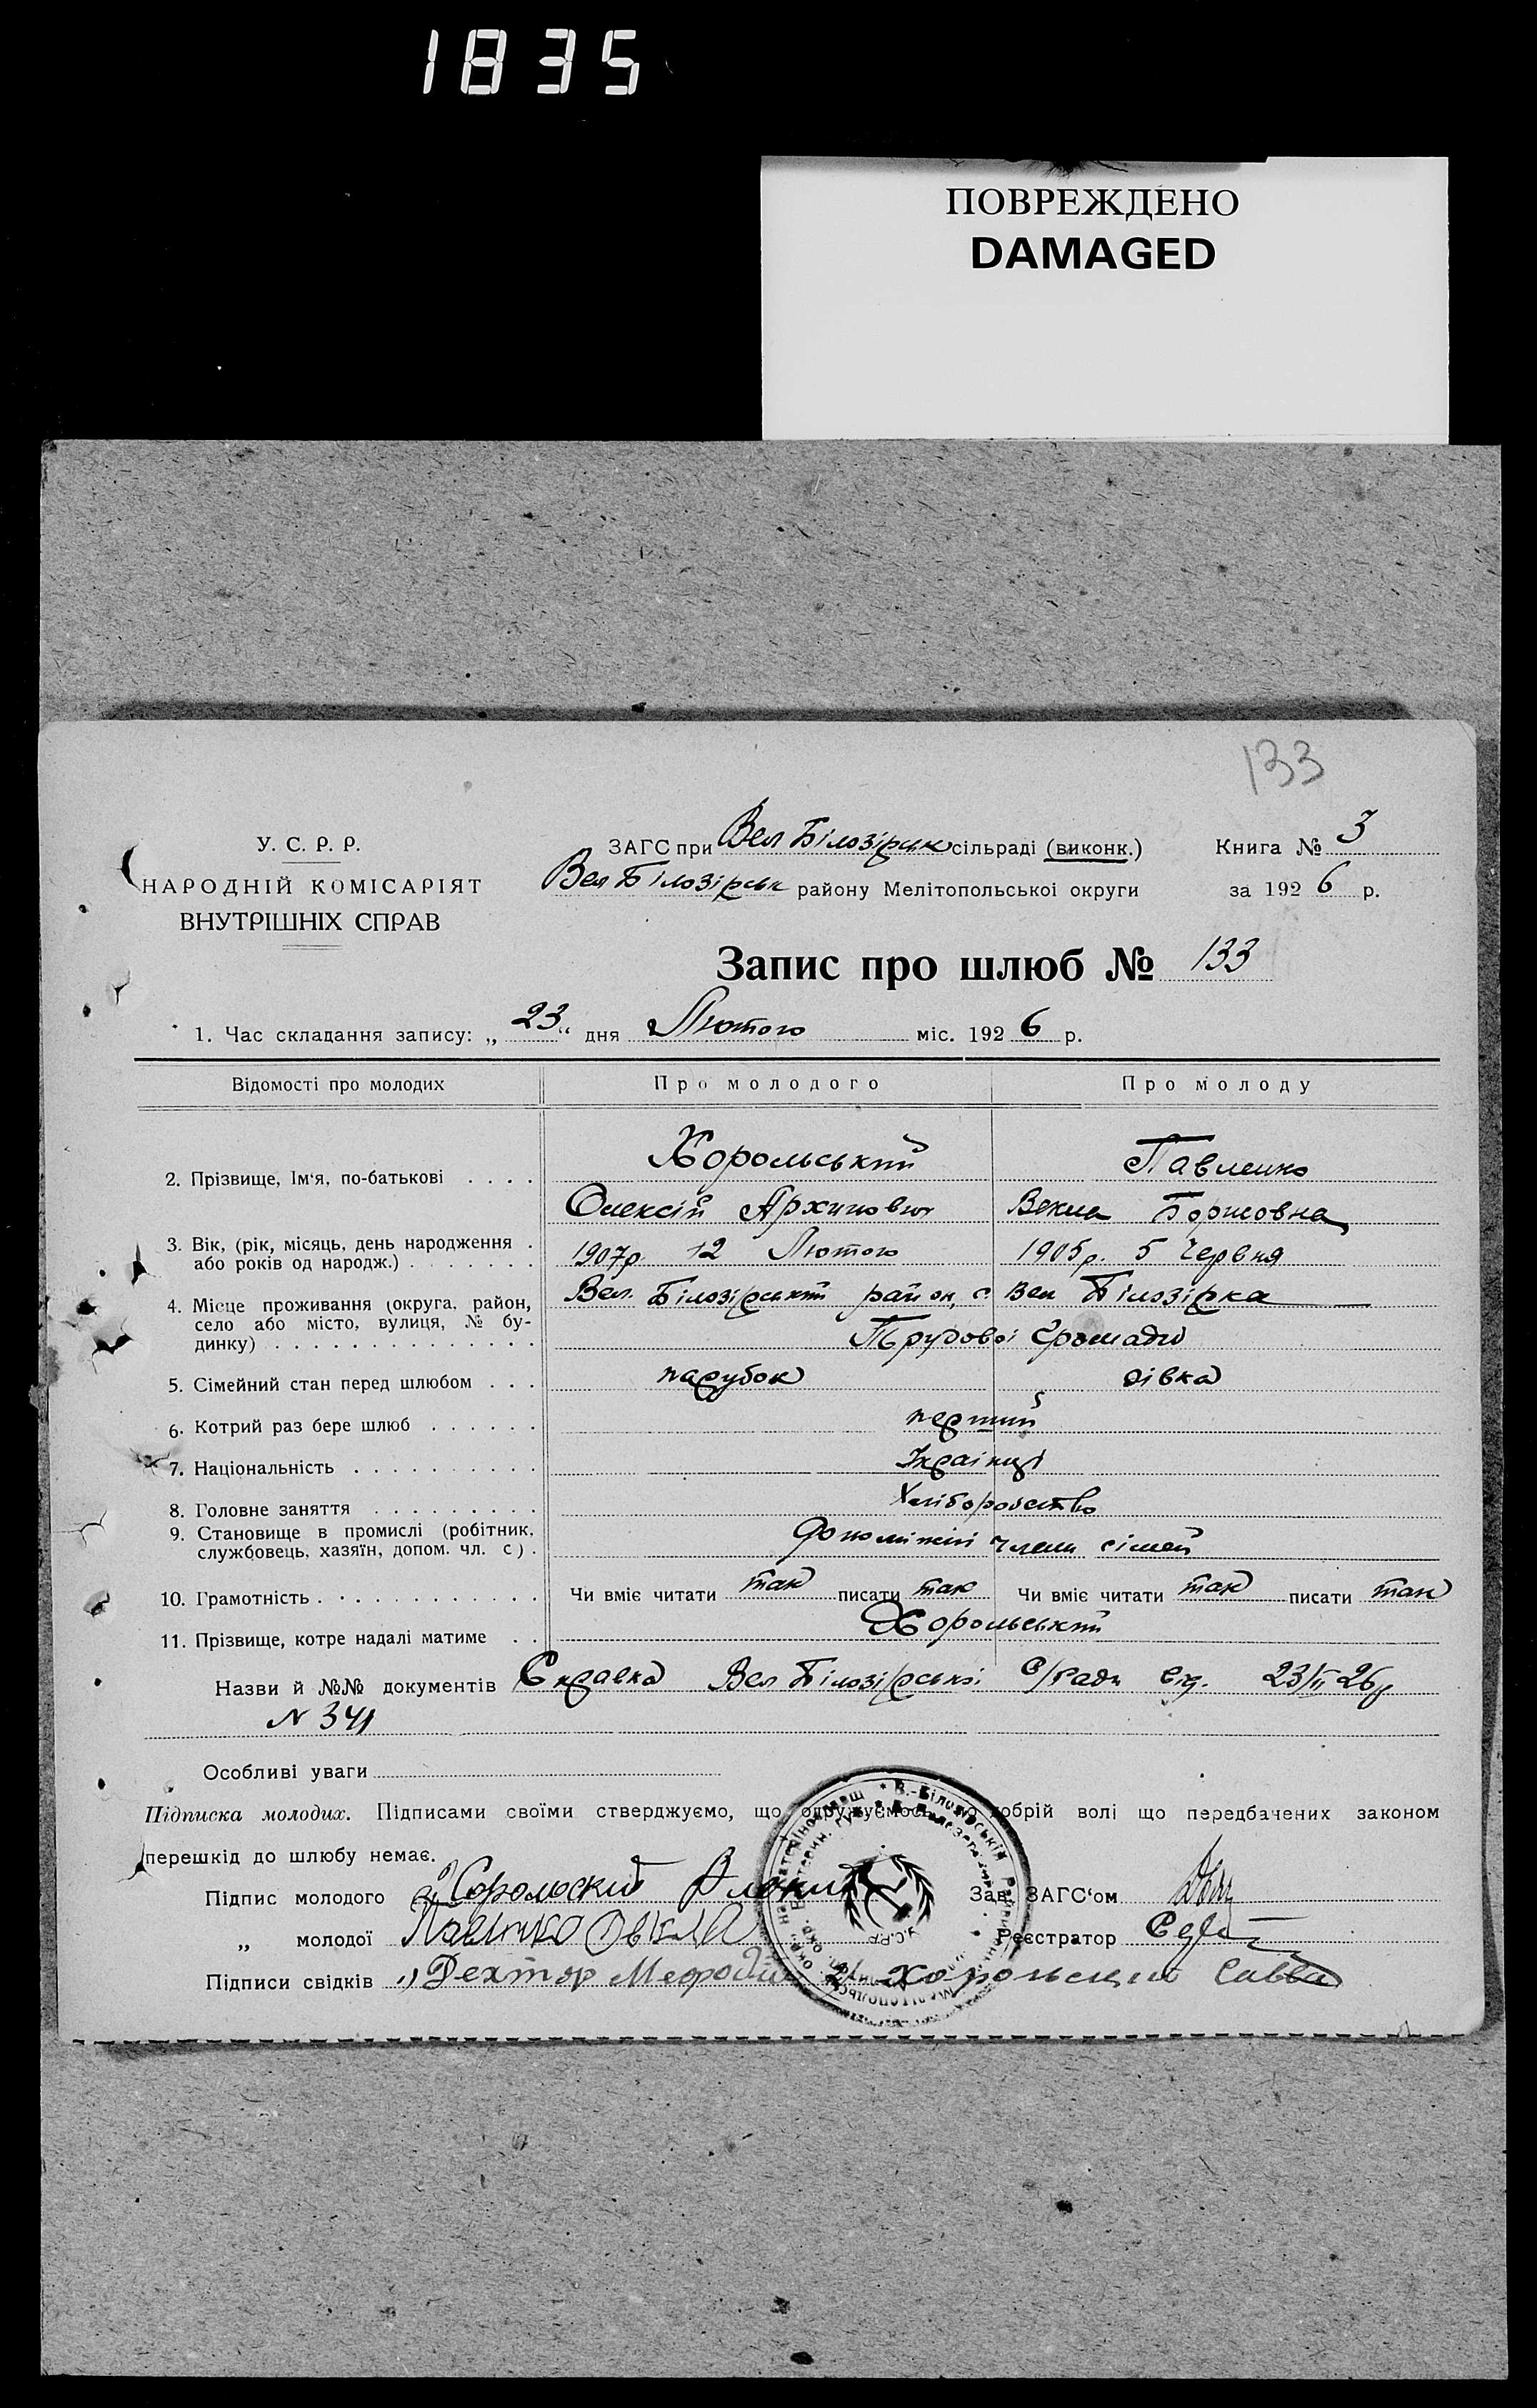 1835
ПОВРЕЖДЕНО
DAMAGED
133
У. С. Р. Р.
НАРОДНІЙ КОМІСАРІЯТ
ВНУТРІШНІХ СПРАВ
ЗАГС при Вел Білозірськ сільраді (виконк.)
Вел Білозірськ району Мелітопольської округи
Книга № 3
за 1926 р.
Запис про шлюб № 133
1. Час складання запису: „23“ дня Лютого міс. 1926 р.
Відомості про молодих Про молодого Про молоду
2. Прізвище, Ім‘я, по-батькові . . . . Хорольський Павленко
Олексій Архипович Векла Борисовна
3. Вік, (рік, місяць, день народження . або років од народж.) . . . . . . . 1907р. 12 Лютого 1905р. 5 Червня
4. Місце проживання (округа, район, Вел. Білозірський район, с Вел Білозірка
село або місто, вулиця, № бу-
динку) . . . . . . . . . . . . . . Трудової Громади
5. Сімейний стан перед шлюбом . . . парубок дівка
6. Котрий раз бере шлюб . . . . . . перший
7. Національність . . . . . . . . . . Українці
8. Головне заняття . . . . . . . . . Хліборобство
9. Становище в промислі (робітник,
службовець, хазяїн, допом. чл. с) . допоміжні члени сімей
10. Грамотність . . . . . . . . . . . . Чи вміє читати так писати так Чи вміє читати так писати так
11. Прізвище, котре надалі матиме . . Хорольський
Назви й №№ документів Справка Вел Білозірської С/Ради від. 23/II 26р
N 341
Особливі уваги
Підписка молодих. Підписами своїми стверджуємо, що одружуємось по добрій волі що передбачених законом
перешкід до шлюбу немає.
Підпис молодого Зав. ЗАГС‘ом
„ молодої Реєстратор
Підписи свідків 1) Дехтяр Мефодій 2) Хорольський Савва